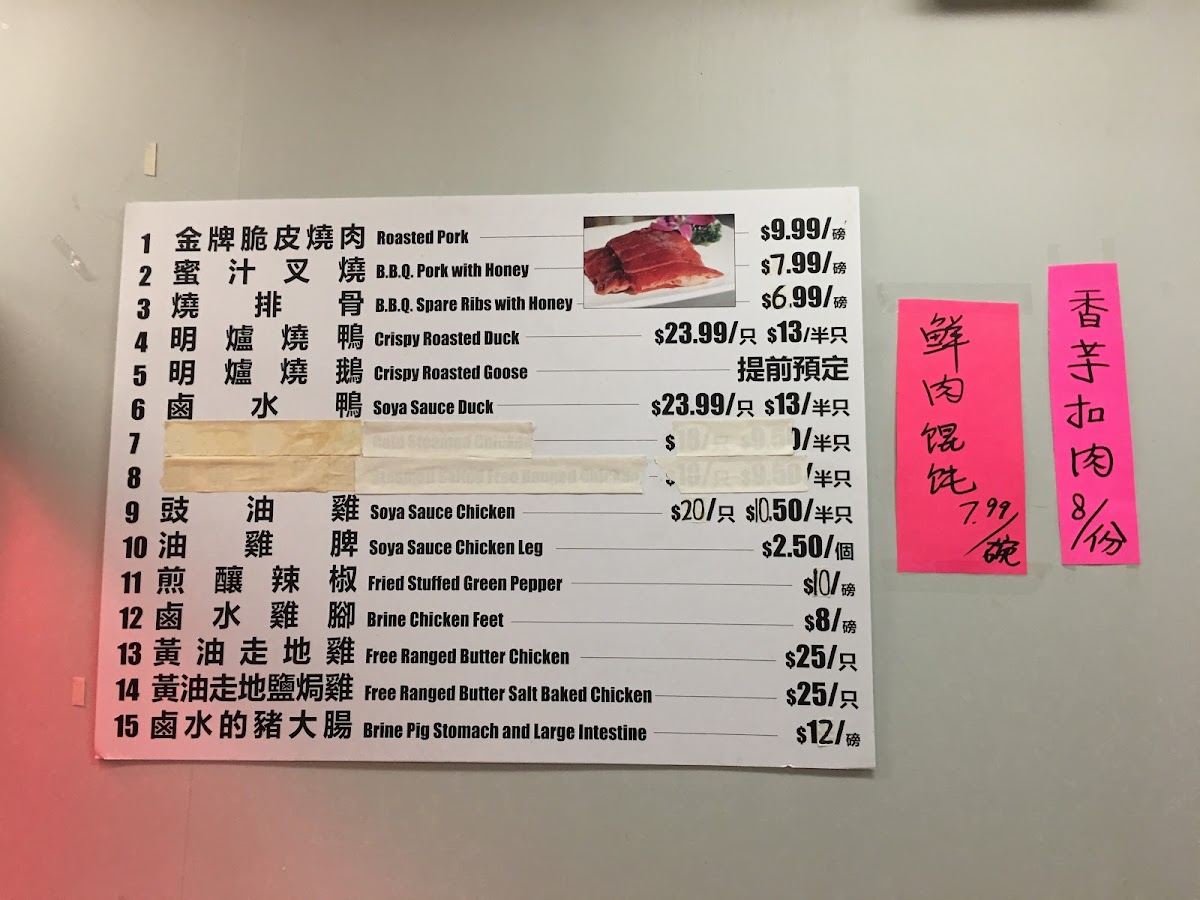 1 金牌脆皮燒肉 Roasted Pork $9.99/磅
2 蜜汁叉燒 B.B.Q. Pork with Honey $7.99/磅
3 燒排骨 B.B.Q. Spare Ribs with Honey $6.99/磅
4 明爐燒鴨 Crispy Roasted Duck $23.99/只 $13/半只
5 明爐燒鵝 Crispy Roasted Goose 提前預定
6 鹵水鴨 Soya Sauce Duck $23.99/只 $13/半只
7 $18/只 $9.50/半只
8 $18/只 $9.50/半只
9 豉油雞 Soya Sauce Chicken $20/只 $10.50/半只
10 油雞脾 Soya Sauce Chicken Leg $2.50/個
11 煎釀辣椒 Fried Stuffed Green Pepper $10/磅
12 鹵水雞腳 Brine Chicken Feet $8/磅
13 黃油走地雞 Free Ranged Butter Chicken $25/只
14 黃油走地鹽焗雞 Free Ranged Butter Salt Baked Chicken $25/只
15 鹵水的豬大腸 Brine Pig Stomach and Large Intestine $12/磅
鲜肉馄饨
7.99/碗
香芋扣肉
8/份